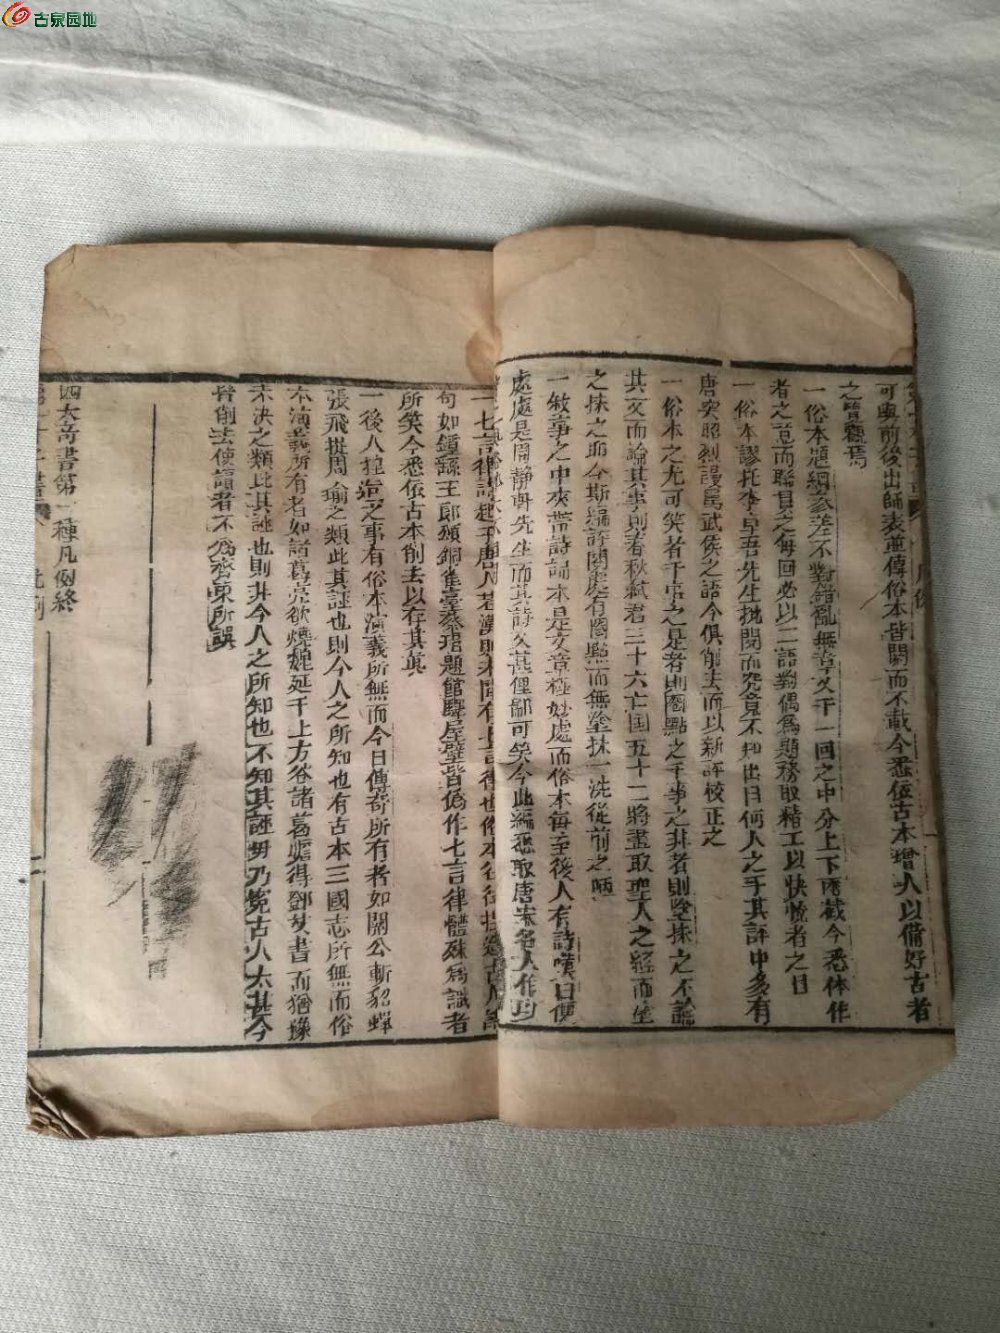 古泉园地
可與前後出師表並傳俗本皆闕而不載今悉依古本增入以備好古者
之覽觀焉
一俗本題綱參差不對錯亂無章又于一回之中分上下兩截今悉体作
者之意而聯貫之每回必以二語對偶為題務取精工以快悅者之目
一俗本謬托李卓吾先生批閱而究竟不知出自何人之手其評中多有
唐突昭烈謾罵武侯之語今俱削去而以新評校正之
一俗本之尤可笑者于事之是者則圈點之于事之非者則塗抹之不論
其文而論其事則春秋弑君三十六亡国五十二將盡取聖人之經而塗
之抹之耶今斯編評閱處有圈點而無塗抹一洗從前之陋
一敘事之中夾帶詩詞本是文章極妙處而俗本每至後人有詩嘆曰便
處處是周静軒先生而其詩又甚俚鄙可笑今此編悉取唐宋名人作
一七言律詩起于唐人若漢則未聞有七言律也俗本往往捏造古人詩
句如鍾繇王郎頌銅雀臺蔡瑁題館驛屋壁皆偽作七言律體殊為識者
所笑今悉依古本削去以存其真
一後人捏造之事有俗本演義所無而今日傳奇所有者如關公斬貂蟬
張飛捉周瑜之類此其誣也則今人之所知也有古本三國志所無而俗
本演義所有者如諸葛亮欲燒魏延于上方谷諸葛瞻得鄧艾書而猶豫
未决之類此其誣也則非今人之所知也不知其誣毋乃冤古人太甚今
皆削去使讀者不為齊東所誤
四大奇書第一種凡例終